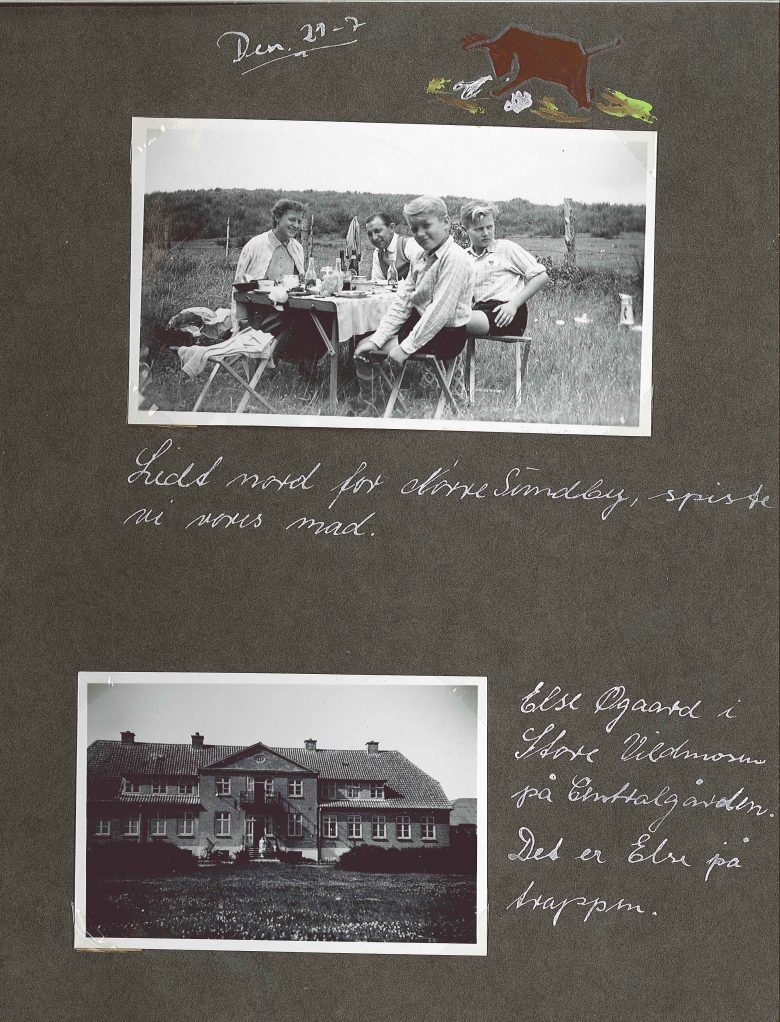 Den. 21-7
Lidt nord for Nørre Sundby, spiste
vi vores mad.
Else Øgaard i
Store Vildmosen
på Centralgården.
Det er Else på
trappen.